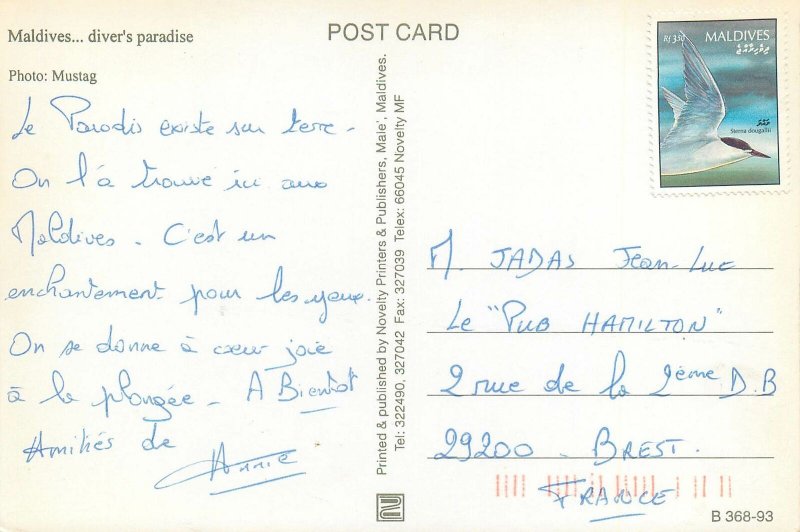 Maldives... diver's paradise
POST CARD
Photo: Mustag
Le Paradis existe sur terre -
On l'a trouvé ici aux
Maldives - C'est un
enchantement pour les yeux.
On se donne à cœur joie
à la plongée - A Bientôt
Amitiés de
Annie
Printed & published by Novelty Printers & Publishers, Male', Maldives.
Tel: 322490, 327042 Fax: 327039 Telex: 66045 Novelty MF
Rf 3.50 MALDIVES
ދިވެހިރާއްޖެ
Sterna dougallii
M. JADAS Jean-Luc
Le "PUB HAMILTON"
2 rue de la 2ème D.B
29200 - BREST.
FRANCE
B 368-93